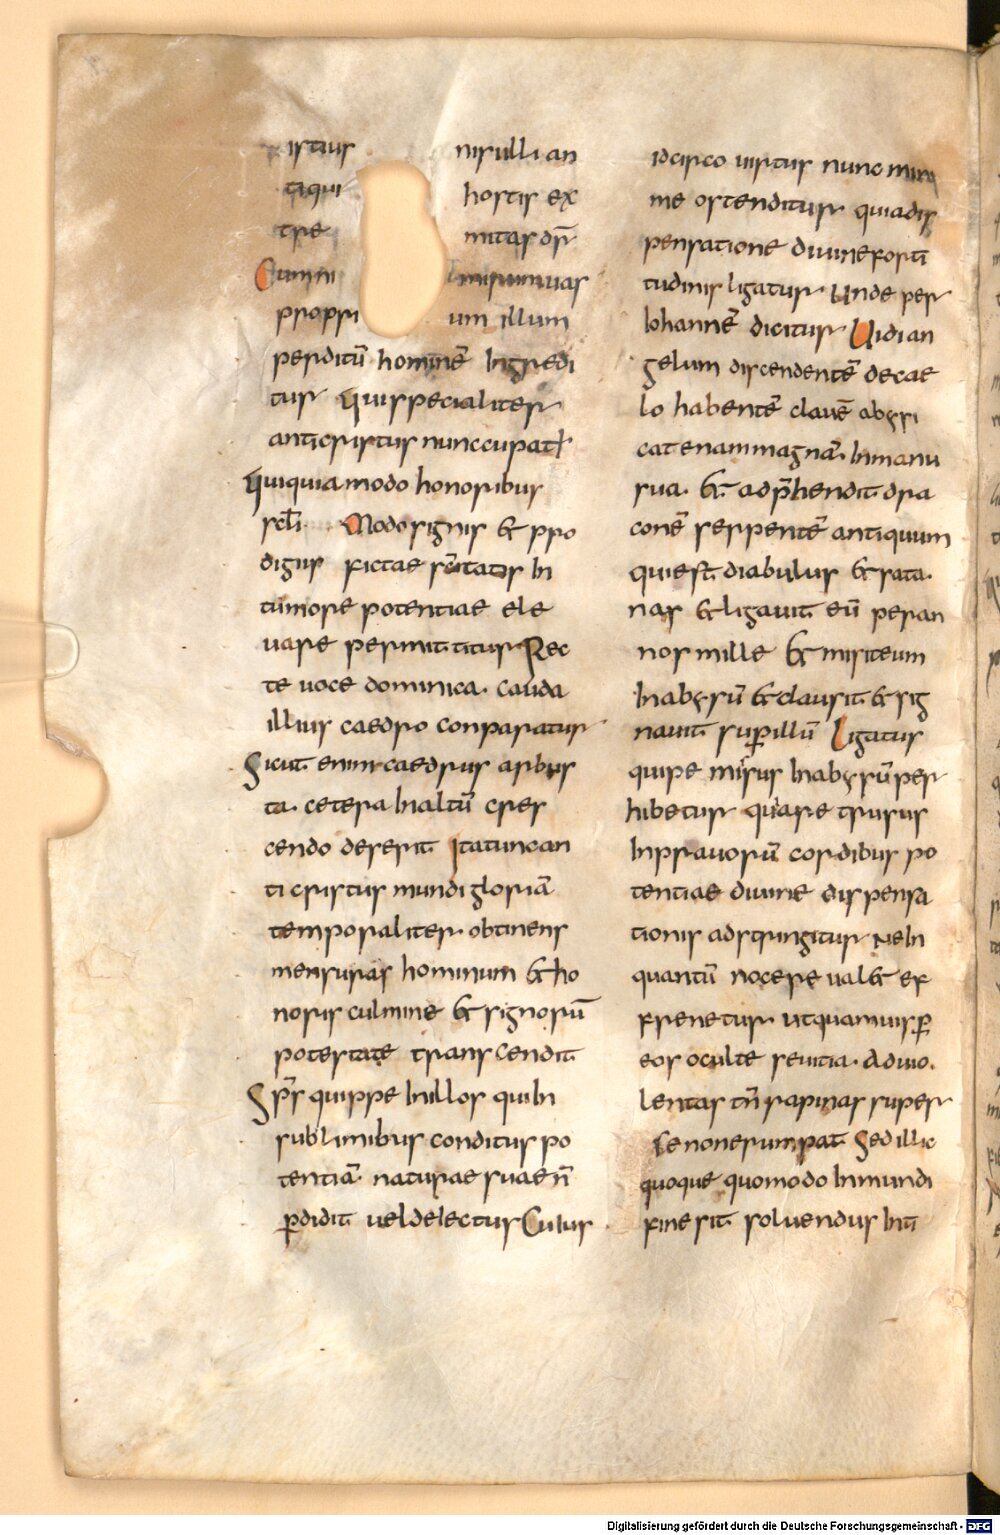 istius nisulli an
tiqui hostis ex
tre mitas dr̄
Cum ni
propri um illum
perditū hominē Ingredi
tur qui specialiter
anticristus nunccupat̄
qui quia modo honoribus
scl̄i Modo signis & pro
digiis fictae sc̄itatis In
tumore potentiae ele
vare permittitur Rec
te uoce dominica. cauda
illius caedro conparatur
Sicut enim caedrus arbus
ta. cetera In altū cres
cendo deserit Ita tunc an
ti cristus mundi gloriā
temporaliter. obtinens
mensuras hominum & ho
noris culmine & signorū
potestate transcendit
Spr̄s quippe In illos qui In
sublimibus conditus po
tentiā. naturae suae n̄
ꝑdidit uel delectus Cuius
idcirco uirtus nunc mini
me ostenditur quia dis
pensatione diuine forti
tudinis ligatur Unde per
Iohannē dicitur Uidi an
gelum discendentē de cae
lo habentē clauē abyssi
catenam magnā. In manu
sua. & adp̄hendit dra
conē serpentē antiquum
qui est diabulus & sata.
nas & ligauit eū per an
nos mille & misit eum
In abyssū & clausit & sig
nauit suꝑ illū Ligatus
quipe misus In abyssū per
hibetur quare trusus
In prauorū cordibus po
tentiae diuine dispensa
tionis adstringitur Ne In
quantū nocere ual& ef
frenetur ut quamuis ꝑ
eos oculte seuitia. ad uio.
lentas tn̄ rapinas super
se non erumpat Sed illic
quoque quomodo In mundi
fine sit soluendus Int